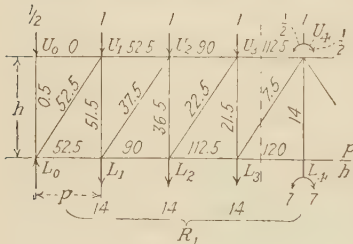 1/2 1 1 1 1/2 1 1/2
U₀ 0 U₁ 52.5 U₂ 90 U₃ 112.5 U₄
h 0.5 52.5 51.5 37.5 36.5 22.5 21.5 7.5 14
52.5 90 112.5 120 p/h
L₀ L₁ L₂ L₃ L₄
p 14 14 14 7 7
R₁